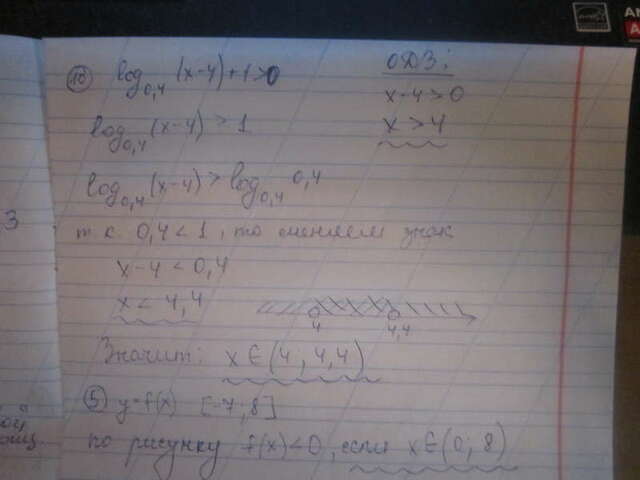 1б log₀,₄ (x-4)+1>0 ОДЗ:
x-4>0
log₀,₄ (x-4) > 1 x>4
log₀,₄ (x-4) > log₀,₄ 0,4
т.к. 0,4<1, то меняем знак
x-4 < 0,4
x < 4,4
4 4,4
Значит: x∈(4; 4,4)
5 y=f(x) [-7; 8]
по рисунку f(x)<0, если x∈(0; 8)
3